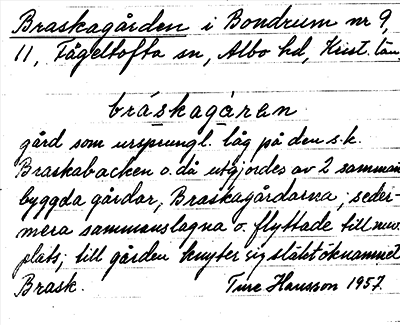 Braskagården i Bondrum nr 9,
11, Fågeltofta sn, Albo hd, Krist. län.
bráskagàren
gård som ursprungl. låg på den s.k.
Braskabacken o. då utgjordes av 2 samman
byggda gårdar, Braskagårdarna; seder-
mera sammanslagna o. flyttade till nuv.
plats; till gården knyter sig släktöknamnet
Brask. Ture Hansson 1957.